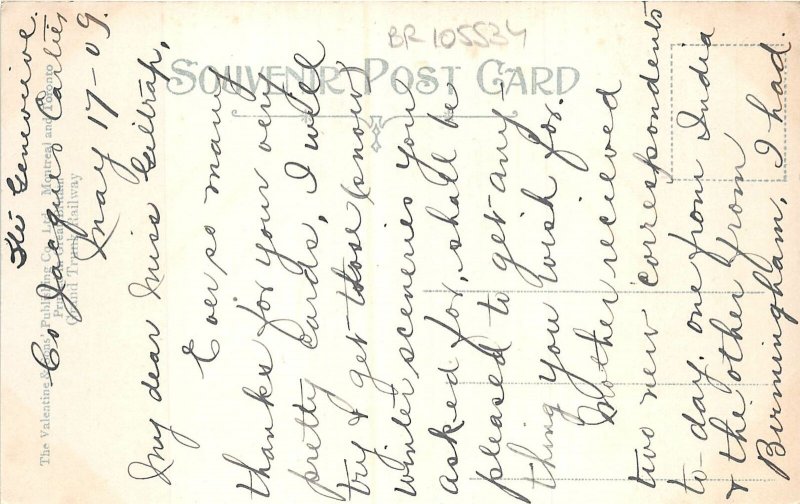 Ste Genevieve.
Co Jacques Cartier
May 17-09.
My dear Miss Giltrap,
Ever so many
thanks for your very
pretty cards, I will
try & get those (snow)
winter sceneries you
asked for, shall be
pleased to get any-
thing you wish for.
Mother recieved
two new correspondents
to-day, one from India
& the other from
Birmingham, I had.
SOUVENIR POST CARD
BR 105534
The Valentine & Sons' Publishing Co., Ltd., Montreal and Toronto
Printed in Great Britain
Grand Trunk Railway